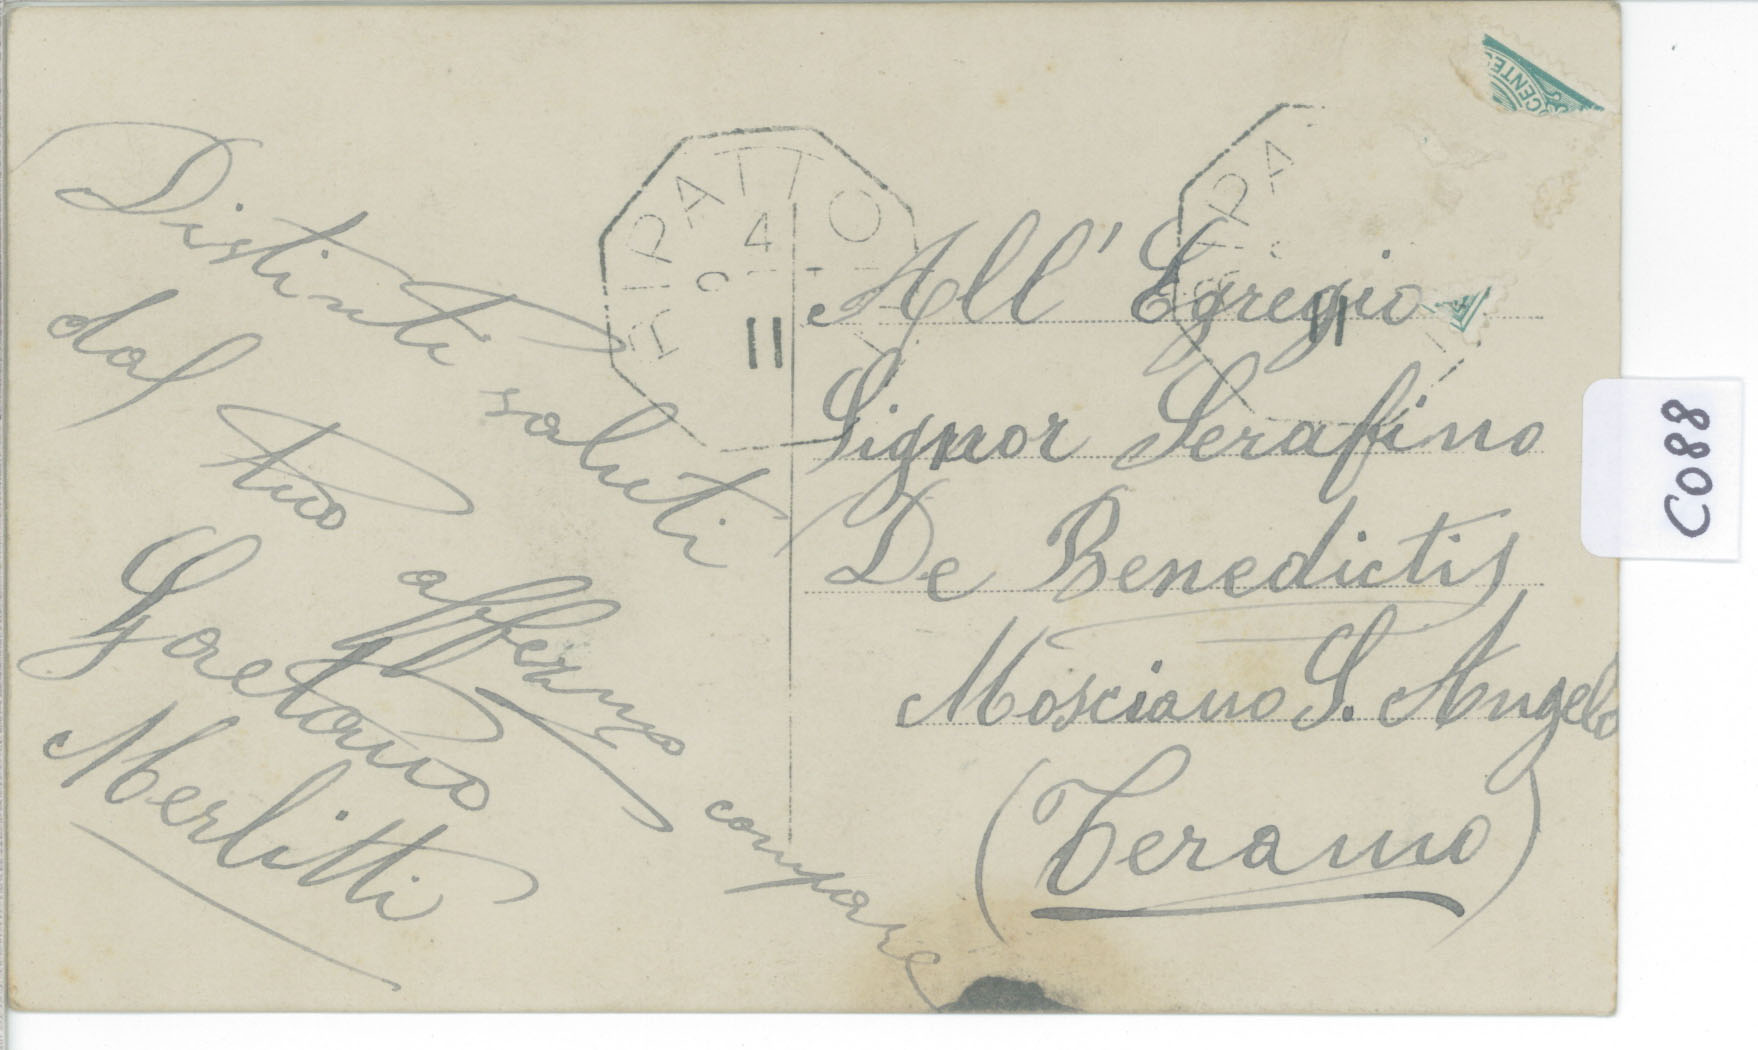 Distinti saluti
dal tuo affezmo compare
Gaetano
Merlitti
RIPATTONI
4
2
11
RIPA
11
CENTES
All' Egregio
Signor Serafino
De Benedictis
Mosciano S. Angelo
(Teramo)
C088